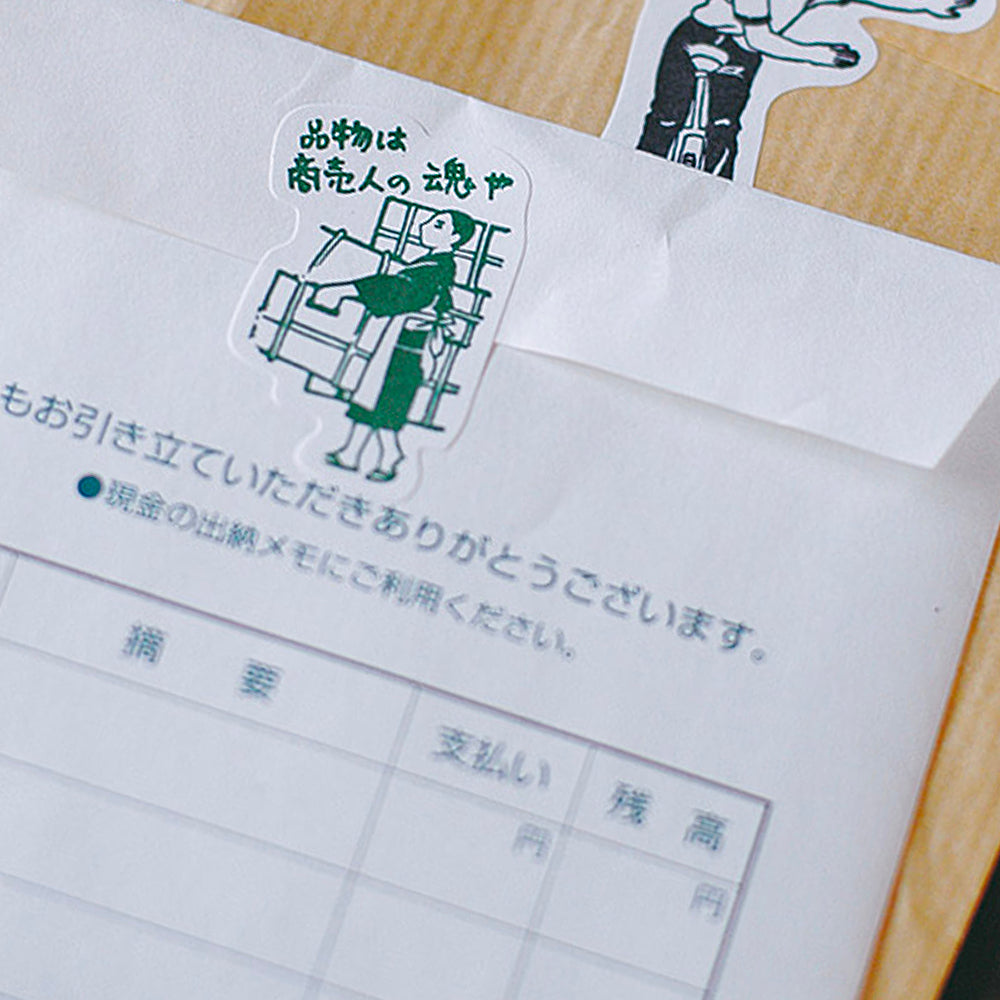 品物は
商売人の魂や
もお引き立ていただきありがとうございます。
●現金の出納メモにご利用ください。
摘 要
支払い
残 高
円
円